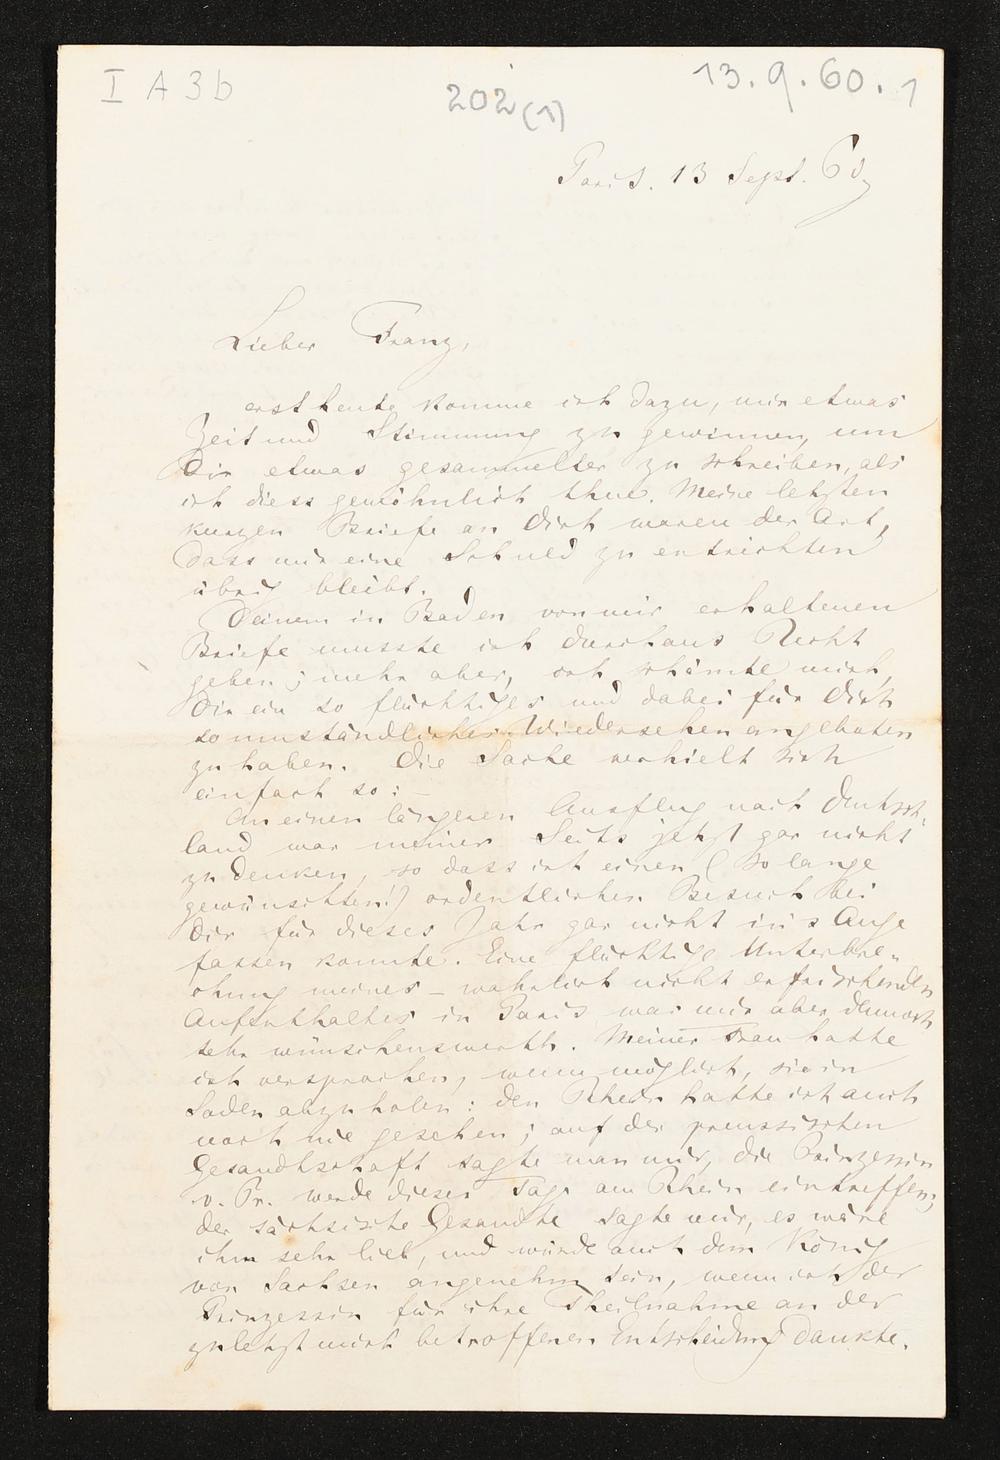 I A 3b
202 (1)
13.9.60. 1
Paris. 13 Sept. 60
Lieber Franz,
erst heute komme ich dazu, mir etwas
Zeit und Stimmung zu gewinnen, um
Dir etwas gesammelter zu schreiben, als
ich diess gewöhnlich thue. Meine letzten
kurzen Briefe an Dich waren der Art,
dass mir eine Schuld zu entrichten
übrig bleibt.
Deinem in Baden von mir erhaltenen
Briefe musste ich durchaus Recht
geben; mehr aber, ich schämte mich,
Dir ein so flüchtiges und dabei für Dich
so umständliches Wiedersehen angeboten
zu haben. Die Sache verhielt sich
einfach so: –
An einen längeren Ausflug nach Deutsch-
land war meiner Seits jetzt gar nicht
zu denken, so dass ich einen (so lange
gewünschten!) ordentlichen Besuch bei
Dir für dieses Jahr gar nicht in's Auge
fassen konnte. Eine flüchtige Unterbre-
chung meines – wahrlich nicht erfrischenden
Aufenthaltes in Paris war mir aber dennoch
sehr wünschenswerth. Meiner Frau hatte
ich versprochen, wenn möglich, sie in
Soden abzuholen: den Rhein hatte ich auch
noch nie gesehen; auf der preussischen
Gesandtschaft sagte man mir, die Prinzessin
v. Pr. werde dieser Tage am Rhein eintreffen;
der sächsische Gesandte sagte mir, es wäre
ihm sehr lieb, und würde auch dem König
von Sachsen angenehm sein, wenn ich der
Prinzessin für ihre Theilnahme an der
zuletzt mich betroffenen Entscheidung dankte.